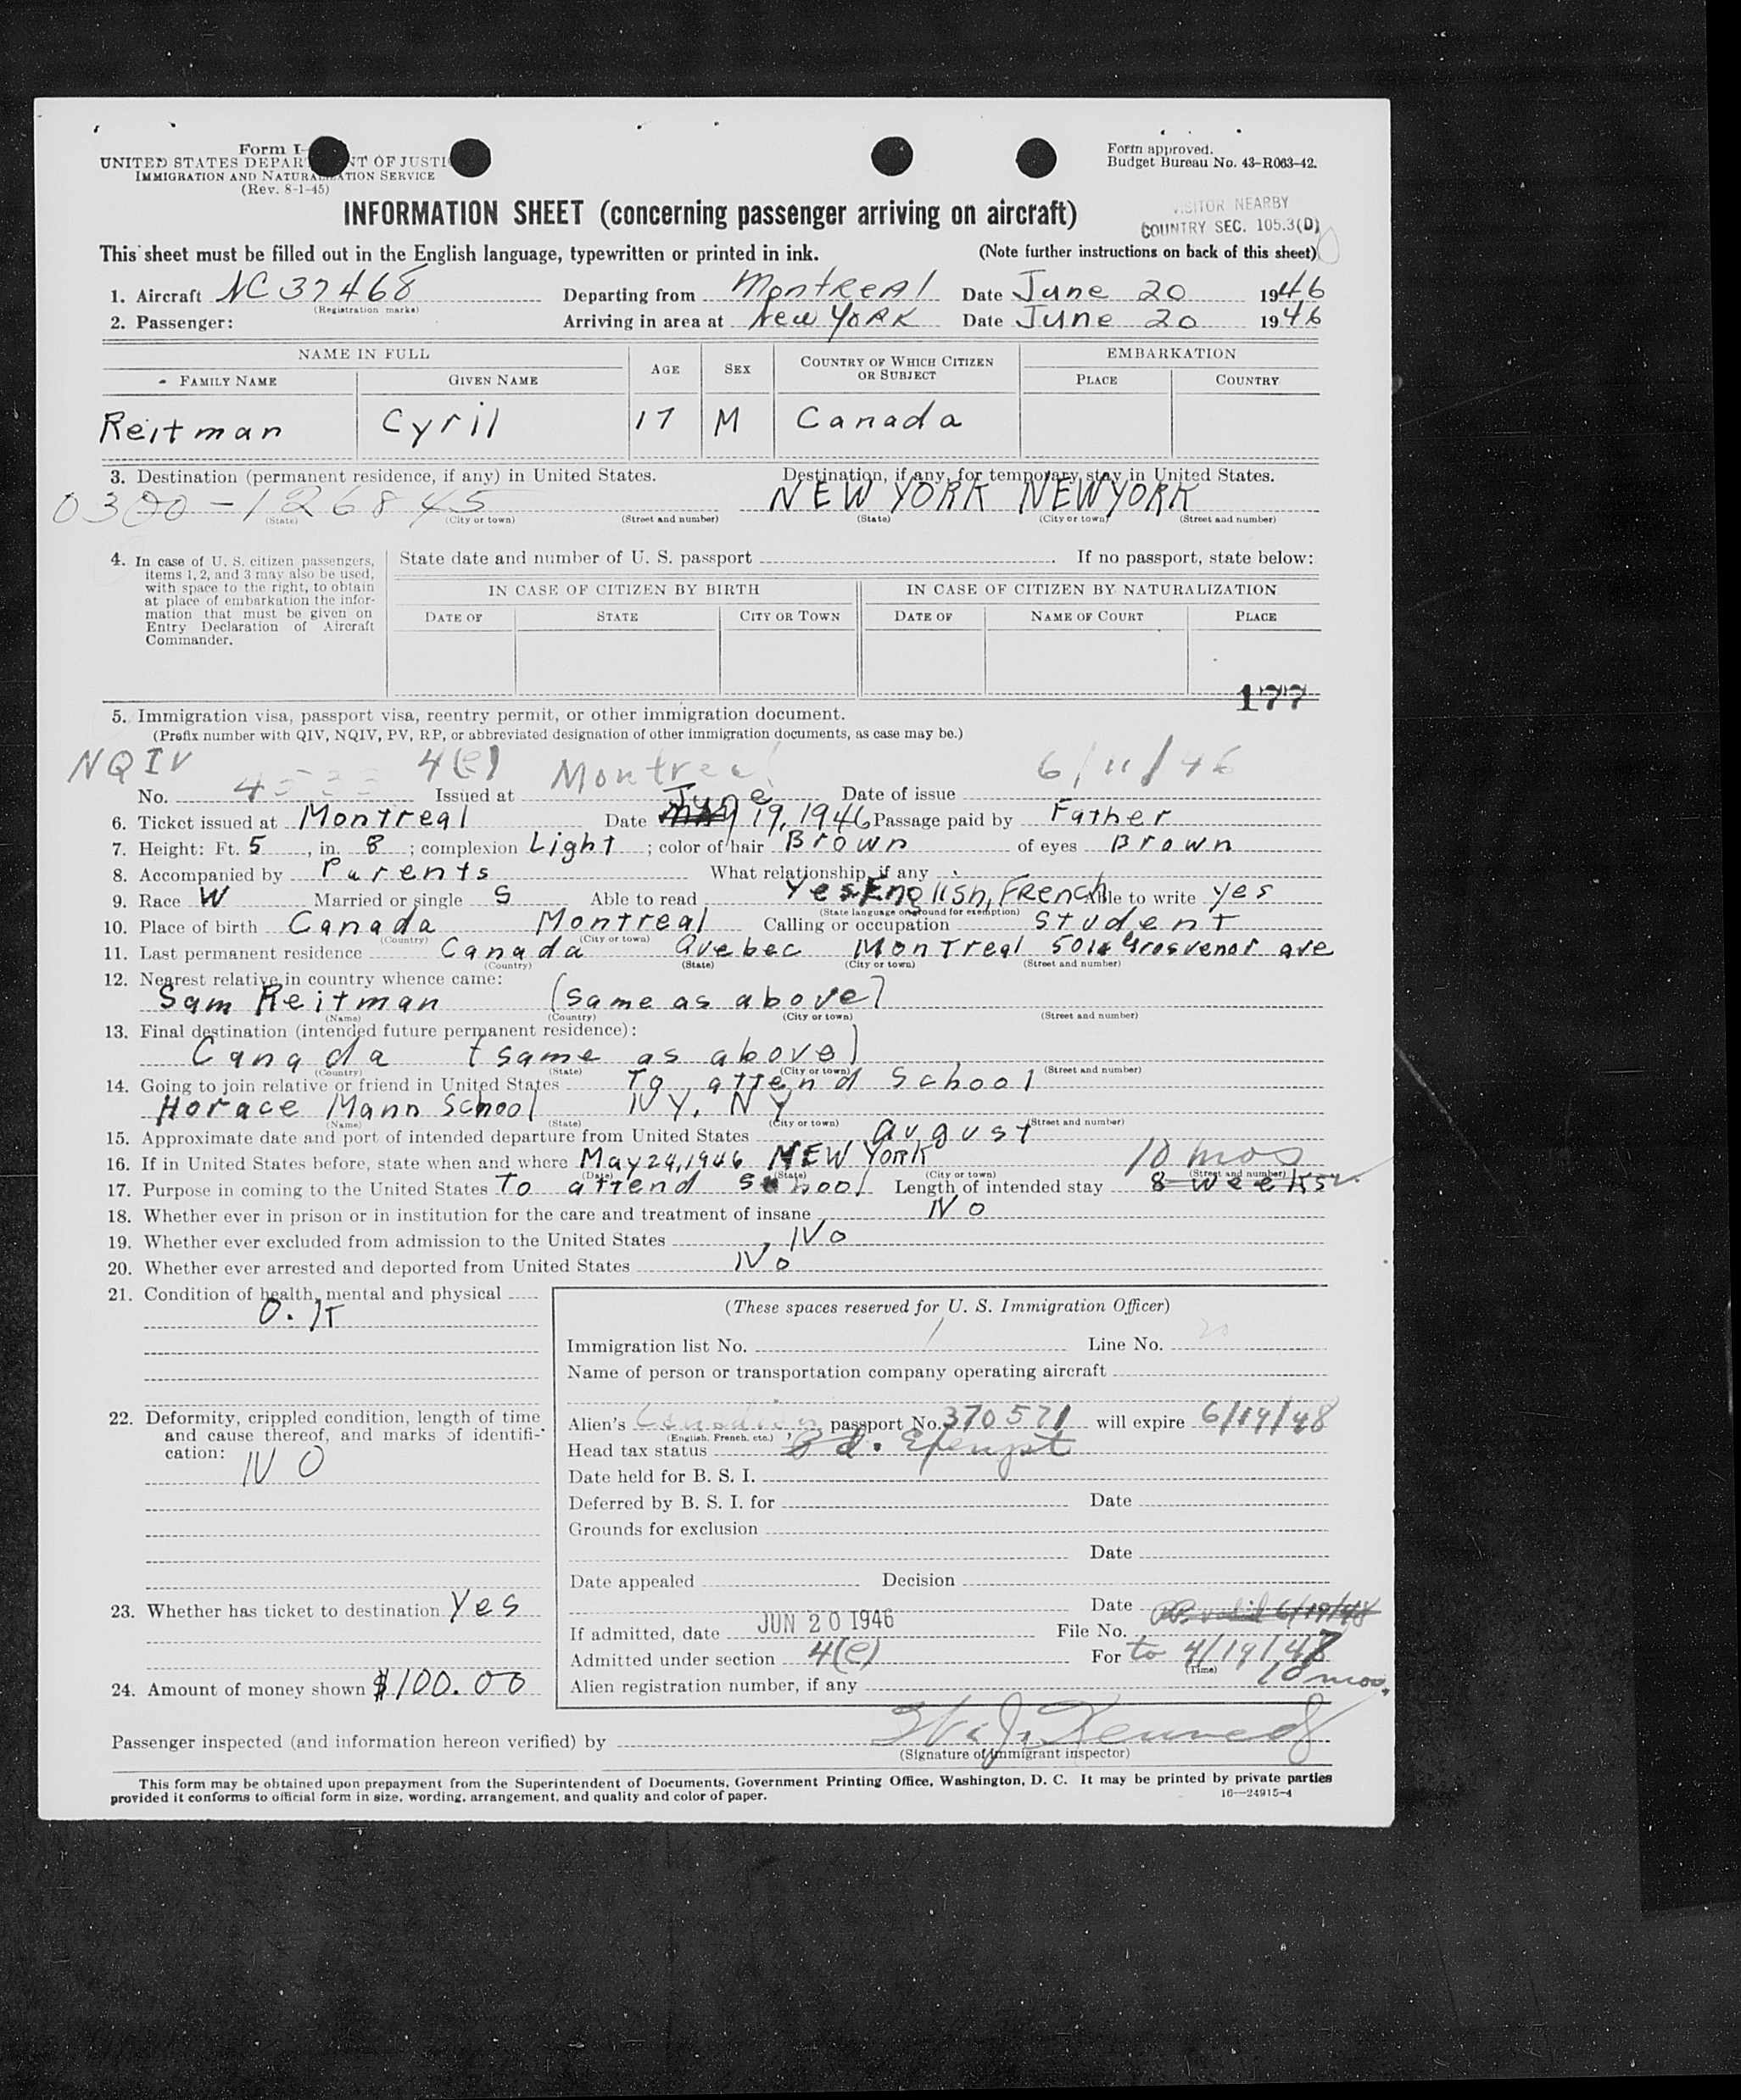 Form I-
UNITED STATES DEPARTMENT OF JUSTICE
IMMIGRATION AND NATURALIZATION SERVICE
(Rev. 8-1-45)
Form approved.
Budget Bureau No. 43-R063-42.
INFORMATION SHEET (concerning passenger arriving on aircraft)
VISITOR NEARBY
COUNTRY SEC. 105.3(D)
This sheet must be filled out in the English language, typewritten or printed in ink. (Note further instructions on back of this sheet)
1. Aircraft NC 37468 Departing from Montreal Date June 20 1946
(Registration marks)
2. Passenger: Arriving in area at New York Date June 20 1946
NAME IN FULL AGE SEX COUNTRY OF WHICH CITIZEN OR SUBJECT EMBARKATION
FAMILY NAME GIVEN NAME PLACE COUNTRY
Reitman Cyril 17 M Canada
3. Destination (permanent residence, if any) in United States. Destination, if any, for temporary stay in United States.
0300-126845 NEW YORK NEW YORK
(State) (City or town) (Street and number) (State) (City or town) (Street and number)
4. In case of U. S. citizen passengers, items 1, 2, and 3 may also be used, with space to the right, to obtain at place of embarkation the information that must be given on Entry Declaration of Aircraft Commander.
State date and number of U. S. passport If no passport, state below:
IN CASE OF CITIZEN BY BIRTH IN CASE OF CITIZEN BY NATURALIZATION
DATE OF STATE CITY OR TOWN DATE OF NAME OF COURT PLACE
177
5. Immigration visa, passport visa, reentry permit, or other immigration document.
(Prefix number with QIV, NQIV, PV, RP, or abbreviated designation of other immigration documents, as case may be.)
NQIV 4(e) Montreal 6/11/46
No. Issued at Date of issue
6. Ticket issued at Montreal Date May June 19, 1946 Passage paid by Father
7. Height: Ft. 5, in. 8; complexion Light; color of hair Brown of eyes Brown
8. Accompanied by Parents What relationship, if any
9. Race W Married or single S Able to read Yes English, French Able to write yes
(State language or ground for exemption)
10. Place of birth Canada Montreal Calling or occupation Student
(Country) (City or town)
11. Last permanent residence Canada Quebec Montreal 5016 Grosvenor ave
(Country) (State) (City or town) (Street and number)
12. Nearest relative in country whence came:
Sam Reitman (same as above)
(Name) (Country) (City or town) (Street and number)
13. Final destination (intended future permanent residence):
Canada (same as above)
(Country) (State) (City or town) (Street and number)
14. Going to join relative or friend in United States To attend School
Horace Mann School NY. NY
(Name) (State) (City or town) (Street and number)
15. Approximate date and port of intended departure from United States August
16. If in United States before, state when and where May 24, 1946 NEW YORK 10 mos
(Date) (State) (City or town) (Street and number)
17. Purpose in coming to the United States To attend school Length of intended stay 8 weeks
18. Whether ever in prison or in institution for the care and treatment of insane No
19. Whether ever excluded from admission to the United States No
20. Whether ever arrested and deported from United States No
21. Condition of health, mental and physical
O.K
22. Deformity, crippled condition, length of time and cause thereof, and marks of identification:
NO
23. Whether has ticket to destination Yes
24. Amount of money shown $100.00
(These spaces reserved for U. S. Immigration Officer)
Immigration list No. 1 Line No. 20
Name of person or transportation company operating aircraft
Alien's Canadian passport No. 370571 will expire 6/19/48
(English, French, etc.)
Head tax status Exempt
Date held for B. S. I.
Deferred by B. S. I. for Date
Grounds for exclusion
Date
Date appealed Decision
Date PP. valid 6/19/48
If admitted, date JUN 20 1946 File No.
Admitted under section 4(e) For to 4/19/47
(Time)
10 mos.
Alien registration number, if any
Passenger inspected (and information hereon verified) by Kennedy
(Signature of immigrant inspector)
This form may be obtained upon prepayment from the Superintendent of Documents, Government Printing Office, Washington, D. C. It may be printed by private parties
provided it conforms to official form in size, wording, arrangement, and quality and color of paper.
16—24915-4